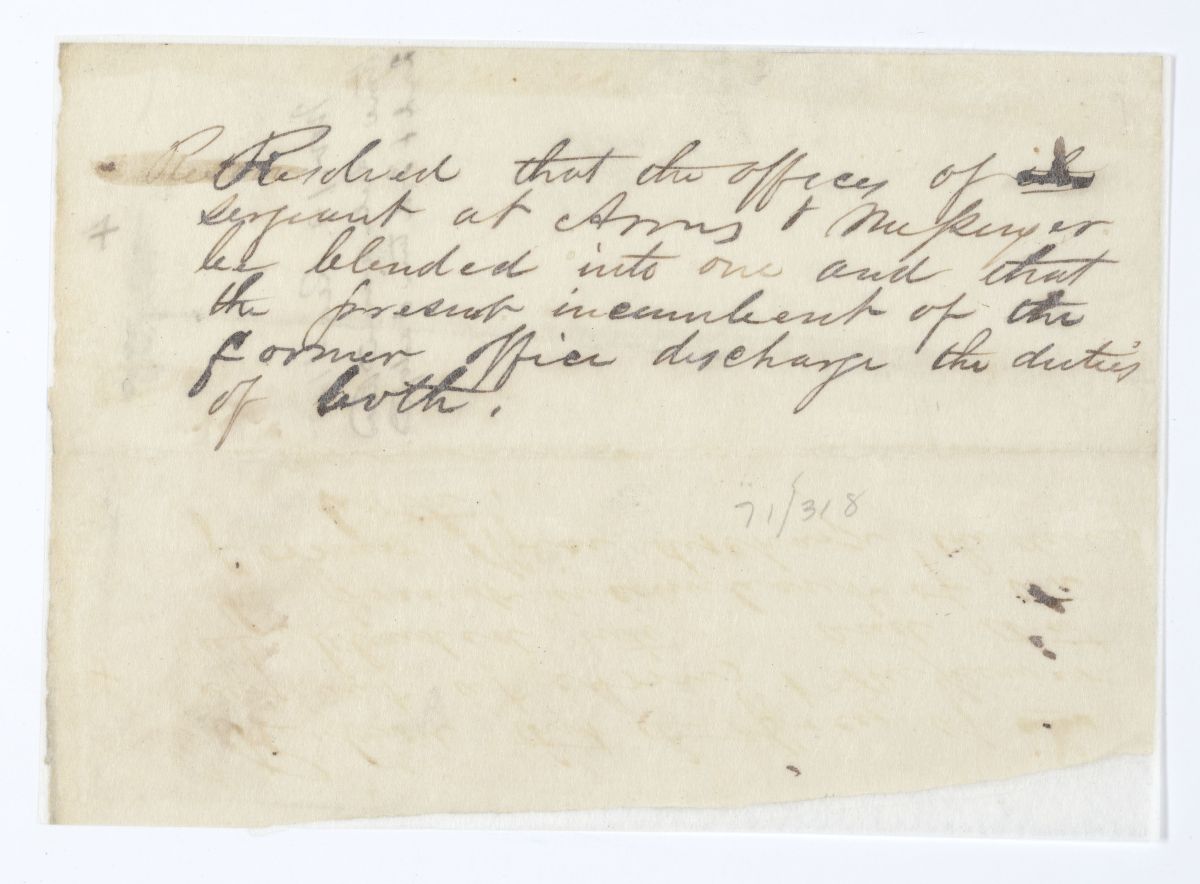 Resolved that the offices of
sergeant at Arms & Messenger
be blended into one and that
the present incumbent of the
former office discharge the duties
of both.
71/318